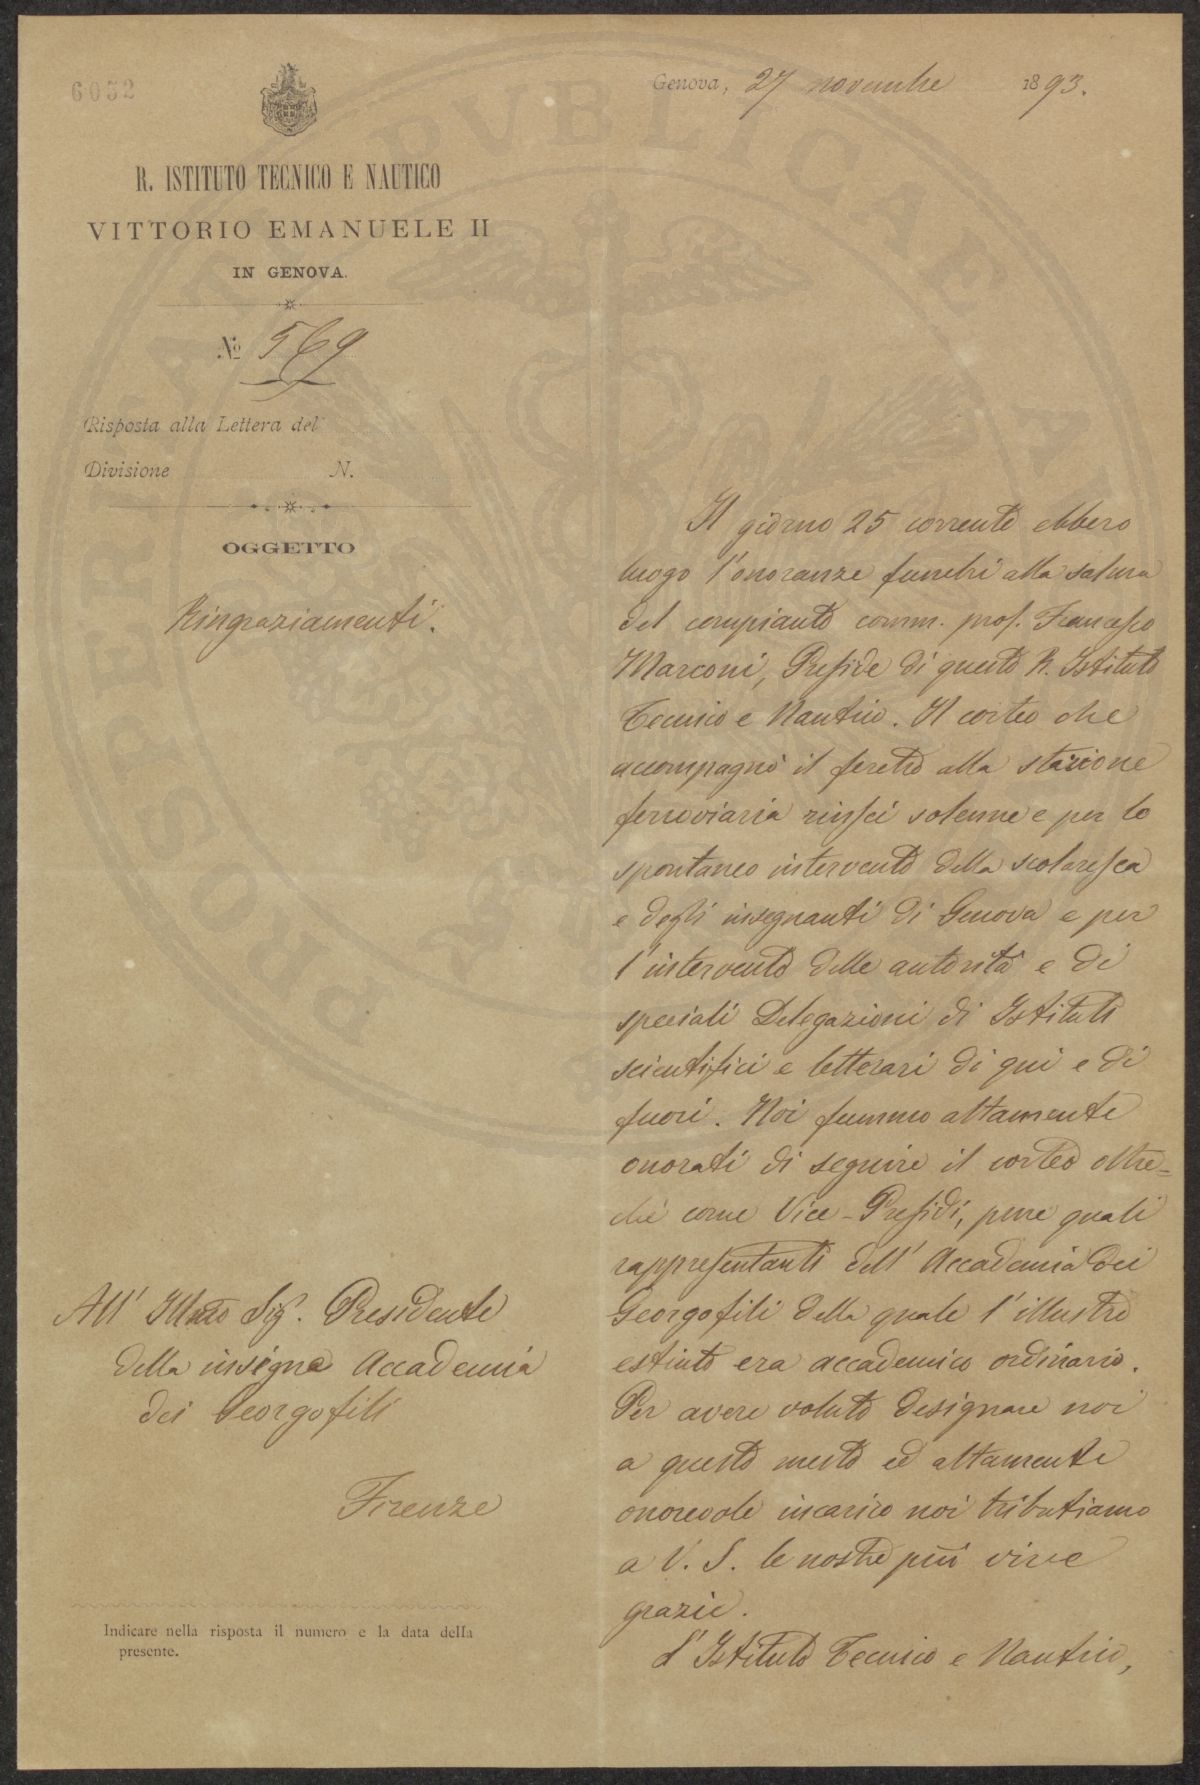 6032
Genova, 27 novembre 1893.
R. ISTITUTO TECNICO E NAUTICO
VITTORIO EMANUELE II
IN GENOVA.
No 569
Risposta alla Lettera del
Divisione N.
OGGETTO
Ringraziamenti.
Il giorno 25 corrente ebbero
luogo l'onoranze funebri alla salma
del compianto comm. prof. Francesco
Marconi, Preside di questo R. Istituto
Tecnico e Nautico. Il corteo che
accompagnò il feretro alla stazione
ferroviaria riuscì solenne e per lo
spontaneo intervento della scolaresca
e degli insegnanti di Genova e per
l'intervento delle autorità e di
speciali Delegazioni di Istituti
scientifici e letterari di qui e di
fuori. Noi fummo altamente
onorati di seguire il corteo oltre=
chè come Vice-Presidi, pure quali
rappresentanti dell'Accademia dei
Georgofili della quale l'illustre
estinto era accademico ordinario.
Per avere voluto designare noi
a questo mesto ed altamente
onorevole incarico noi tributiamo
a V. S. le nostre più vive
grazie.
L'Istituto Tecnico e Nautico,
All' Illmo Sig. Presidente
della insigne Accademia
dei Georgofili
Firenze
Indicare nella risposta il numero e la data della
presente.